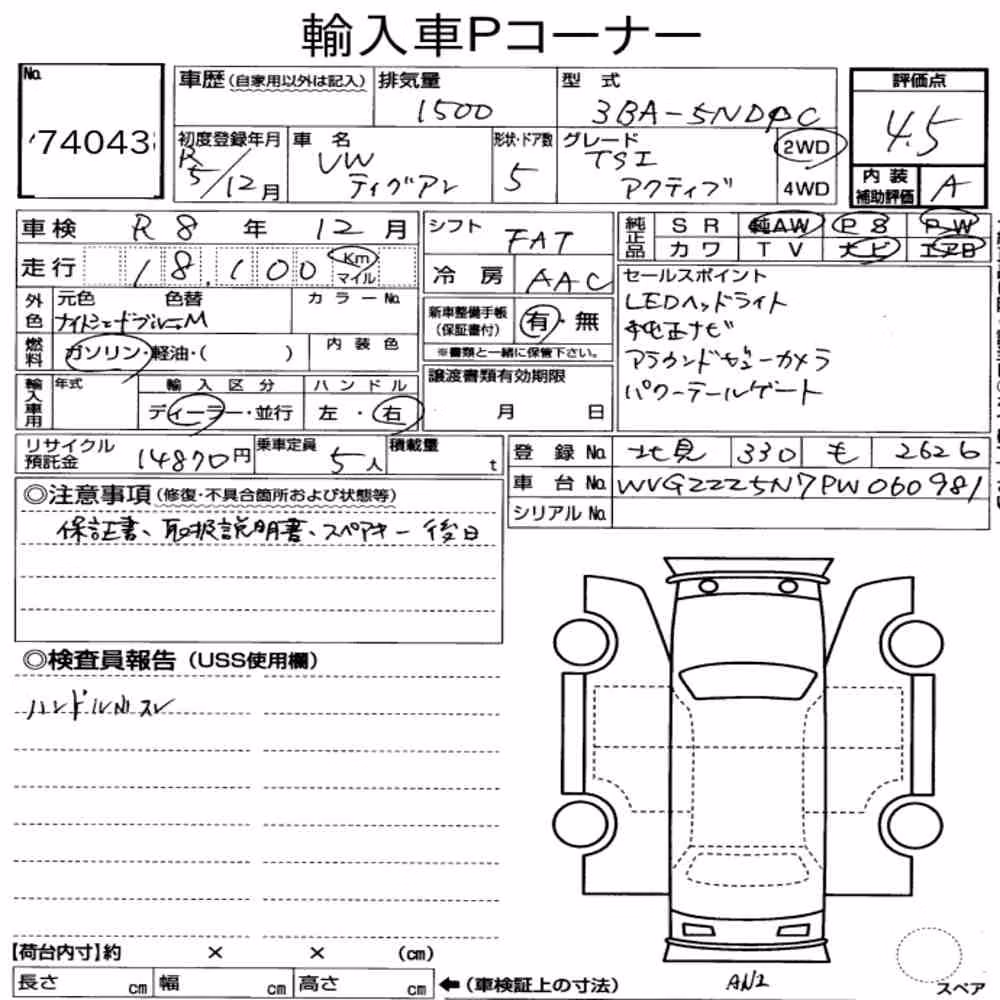 輸入車Pコーナー
No.
74043
車歴(自家用以外は記入)
排気量
1500
型 式
3BA-5NDPC
評価点
4.5
初度登録年月
R5/12月
車 名
VW
ティグアン
形状・ドア数
5
グレード
TSI
アクティブ
2WD
4WD
内 装
補助評価
A
車検 R8 年 12 月
走行 18,100 Km マイル
シフト
FAT
冷 房
AAC
純正品
SR 純AW PS PW
カワ TV ナビ エアB
外色
元色 色替
ナイトシェードブルーM
カラーNo.
新車整備手帳
(保証書付)
有・無
※書類と一緒に保管下さい。
セールスポイント
LEDヘッドライト
純正ナビ
アラウンドビューカメラ
パワーテールゲート
燃料
ガソリン・軽油・( )
内 装 色
輸入車用
年式
輸 入 区 分
ディーラー・並行
ハ ン ド ル
左・右
譲渡書類有効期限
月 日
リサイクル
預託金
14870円
乗車定員
5人
積載量
t
登 録 No. 北見 330 も 2626
車 台 No. WVGZZZ5N7PW060981
シリアル No.
◎注意事項(修復・不具合箇所および状態等)
保証書、取扱説明書、スペアキー後日
◎検査員報告(USS使用欄)
ハンドルスレ
【荷台内寸】約 × × (cm)
長さ cm 幅 cm 高さ cm
←(車検証上の寸法)
スペア